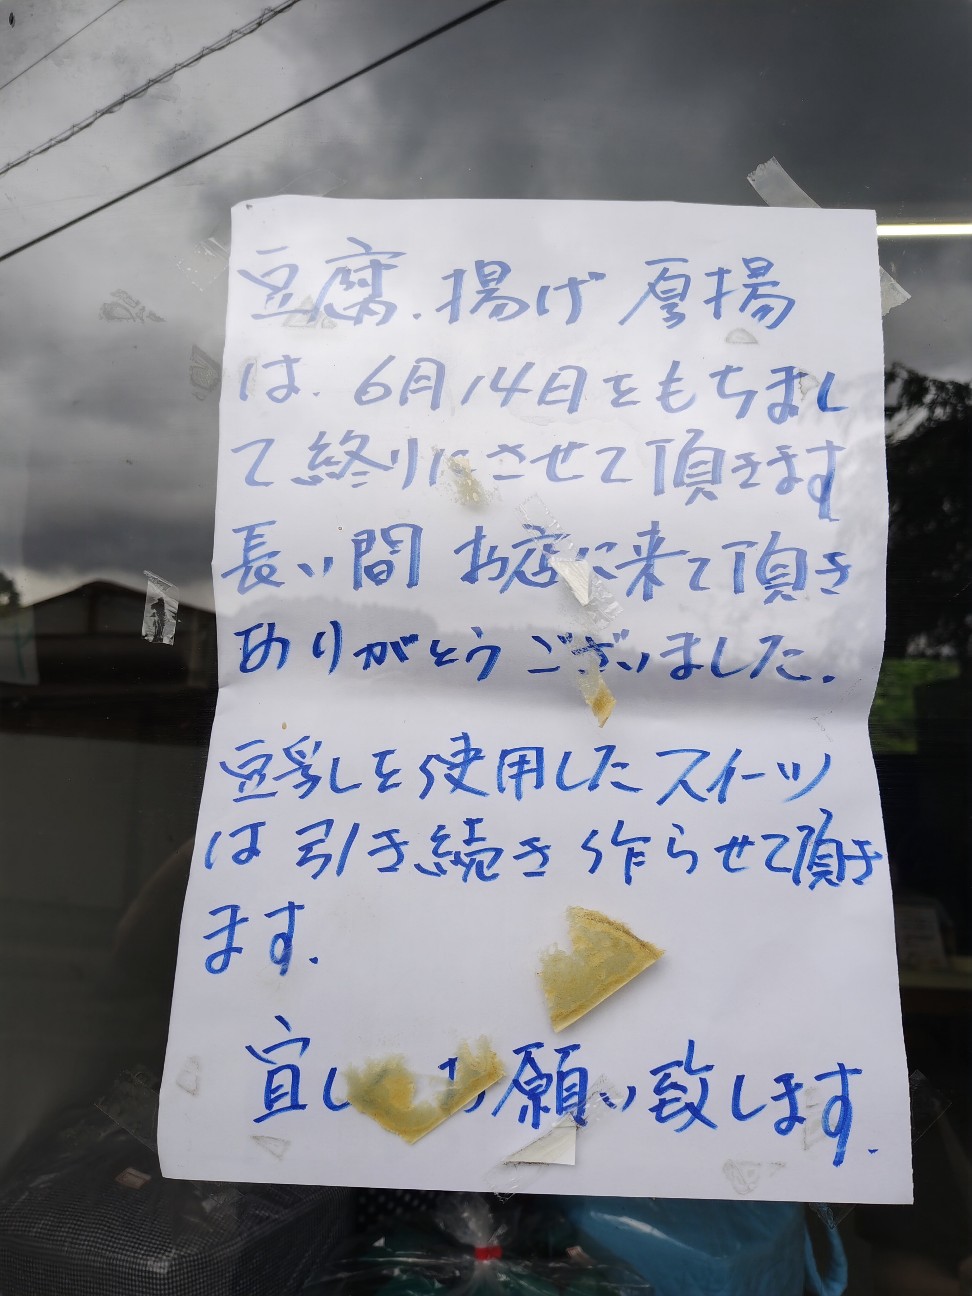 豆腐.揚げ 厚揚
は.6月14日をもちまし
て終りにさせて頂きます
長い間 お店に来て頂き
ありがとうございました.
豆乳しを使用したスイーツ
は引き続き作らせて頂き
ます.
宜し お願い致します.